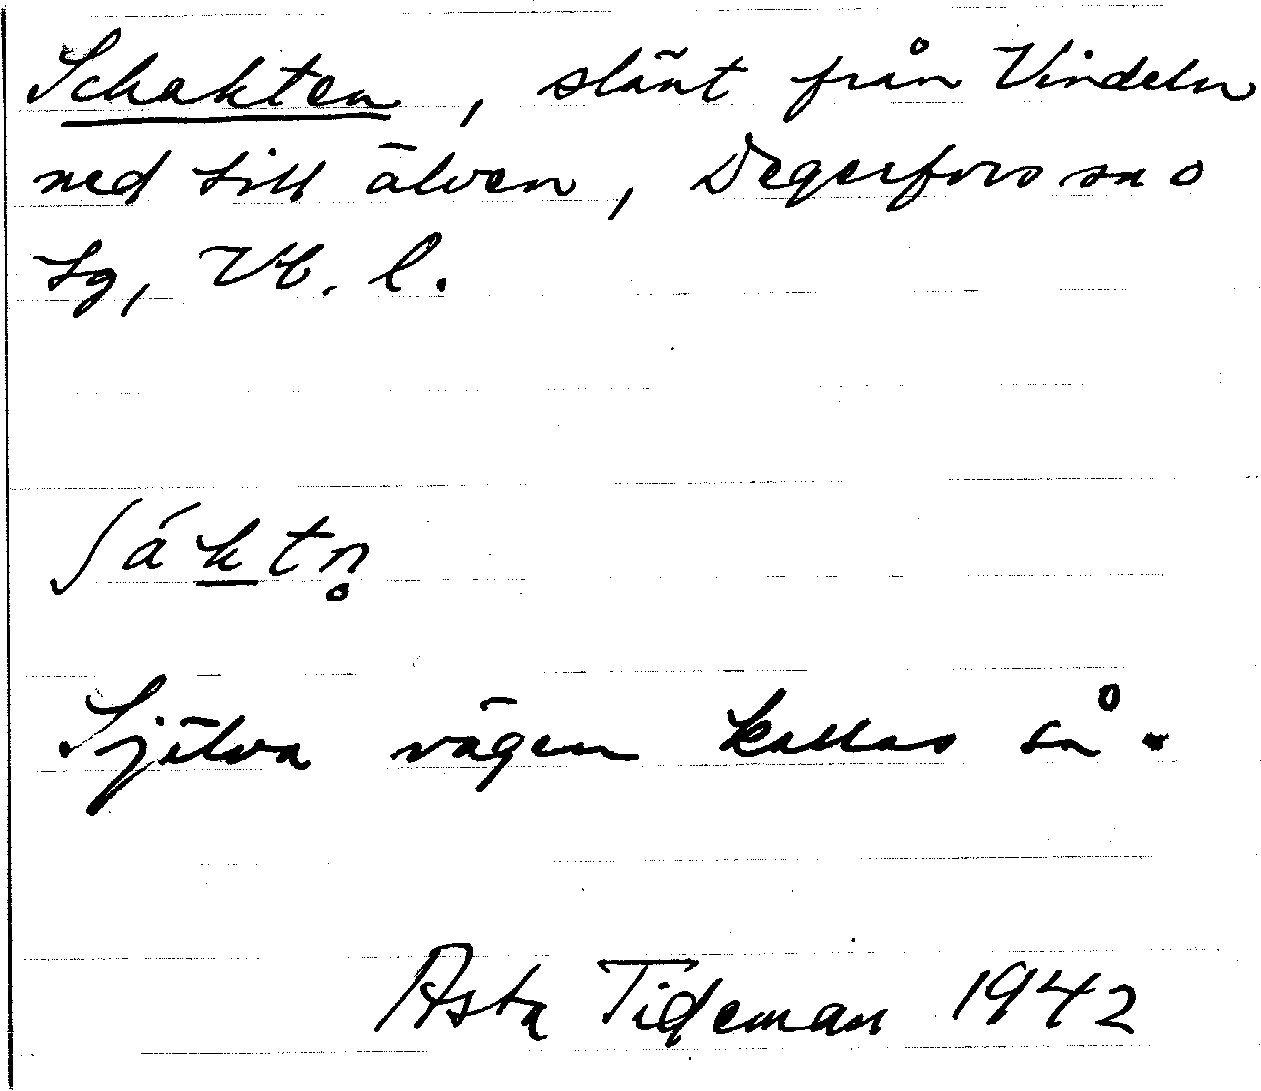 Schakten, slänt från Vindeln
ned till älven, Degerfors sn o
tg, Vb. l.
ʃáktn̥
Själva vägen kallas så.
Asta Tideman 1942